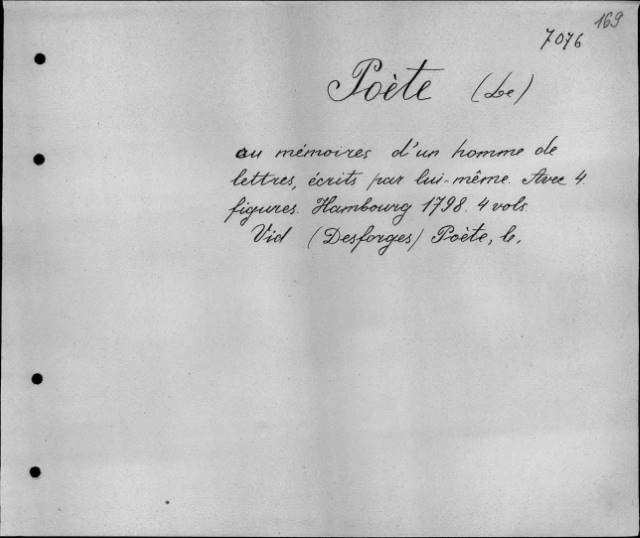 169
7076
Poète (Le)
ou mémoires d'un homme de
lettres, écrits par lui-même. Avec 4
figures. Hambourg 1798. 4 vols.
Vid (Desforges) Poète, le.